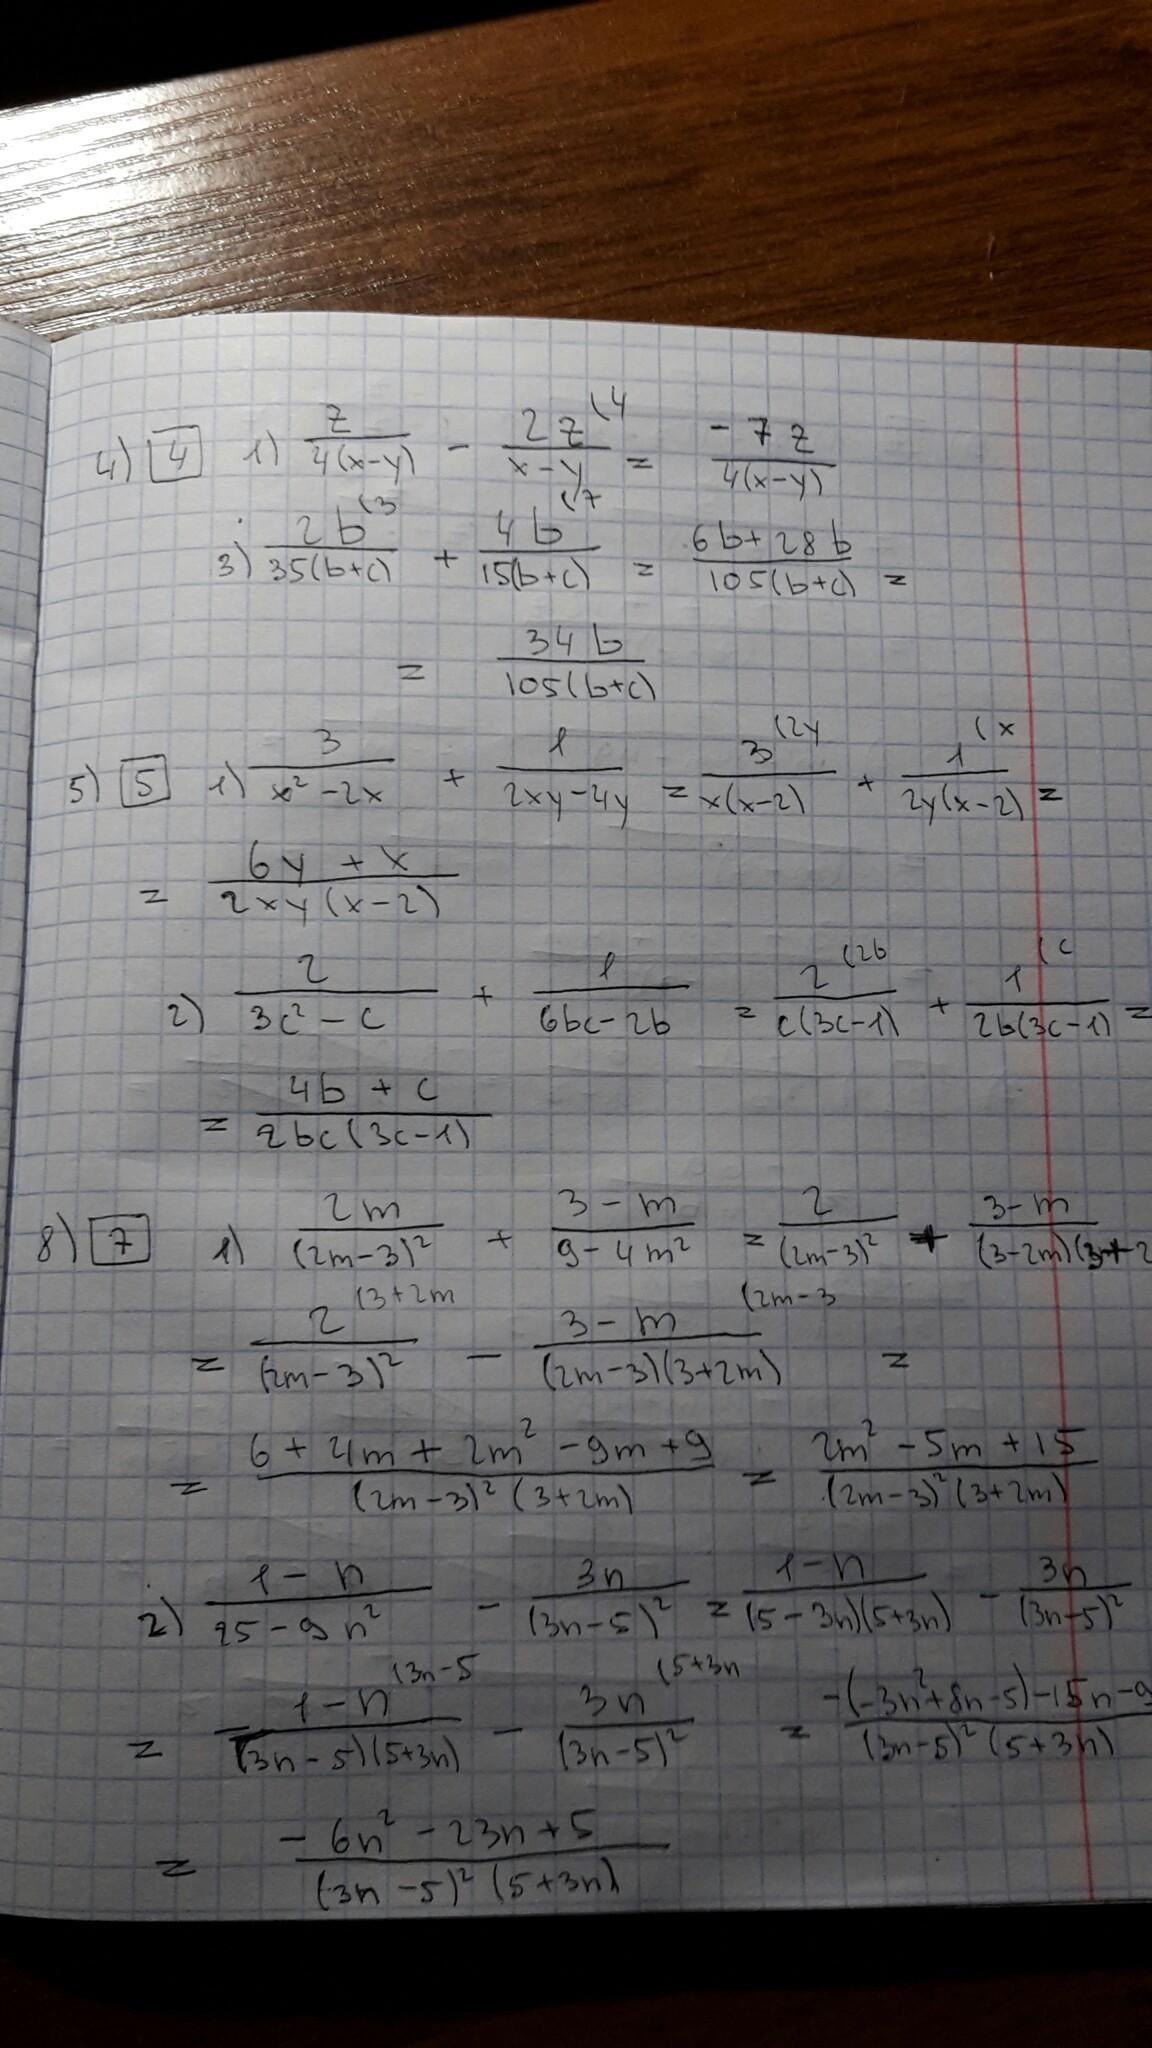 4) 4 1) z/(4(x-y)) - 2z(4/(x-y) = -7z/(4(x-y))
3) 2b(3/(35(b+c)) + 4b(7/(15(b+c)) = (6b+28b)/(105(b+c)) =
= 34b/(105(b+c))
5) 5 1) 3/(x²-2x) + 1/(2xy-4y) = 3(2y/(x(x-2)) + 1(x/(2y(x-2)) =
= (6y+x)/(2xy(x-2))
2) 2/(3c²-c) + 1/(6bc-2b) = 2(2b/(c(3c-1)) + 1(c/(2b(3c-1)) =
= (4b+c)/(2bc(3c-1))
8) 7 1) 2m/(2m-3)² + (3-m)/(9-4m²) = 2/(2m-3)² + (3-m)/((3-2m)(3+2
= 2(3+2m/(2m-3)² - (3-m)(2m-3/((2m-3)(3+2m)) =
= (6+4m+2m²-9m+9)/((2m-3)²(3+2m)) = (2m²-5m+15)/((2m-3)²(3+2m))
2) (1-n)/(25-9n²) - 3n/(3n-5)² = (1-n)/((5-3n)(5+3n)) - 3n/(3n-5)²
= -(1-n)(3n-5/((3n-5)(5+3n)) - 3n(5+3n/(3n-5)² = (-(-3n²+8n-5)-15n-9)/((3n-5)²(5+3n))
= (-6n²-23n+5)/((3n-5)²(5+3n))